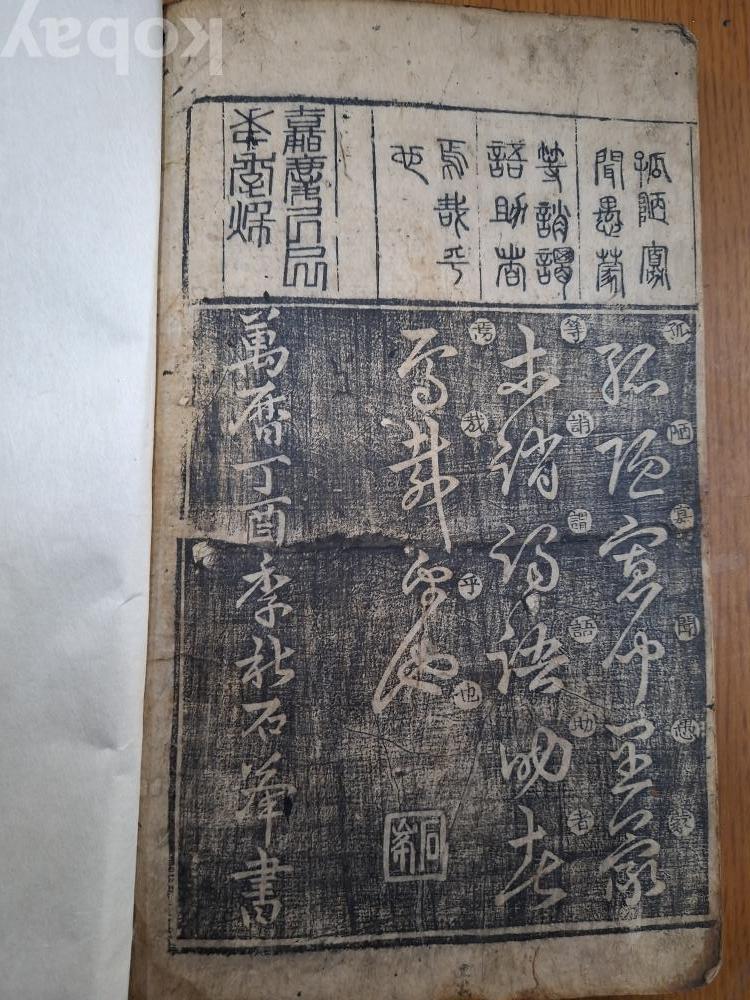 kobay
孤陋寡
聞愚蒙
等誚謂
語助者
焉哉乎
也
嘉慶
孤陋寡聞愚蒙
孤陋寡聞愚蒙
等誚謂語助者
等誚謂語助者
焉哉乎也
焉哉乎也
石峯
萬曆丁酉季秋石峯書